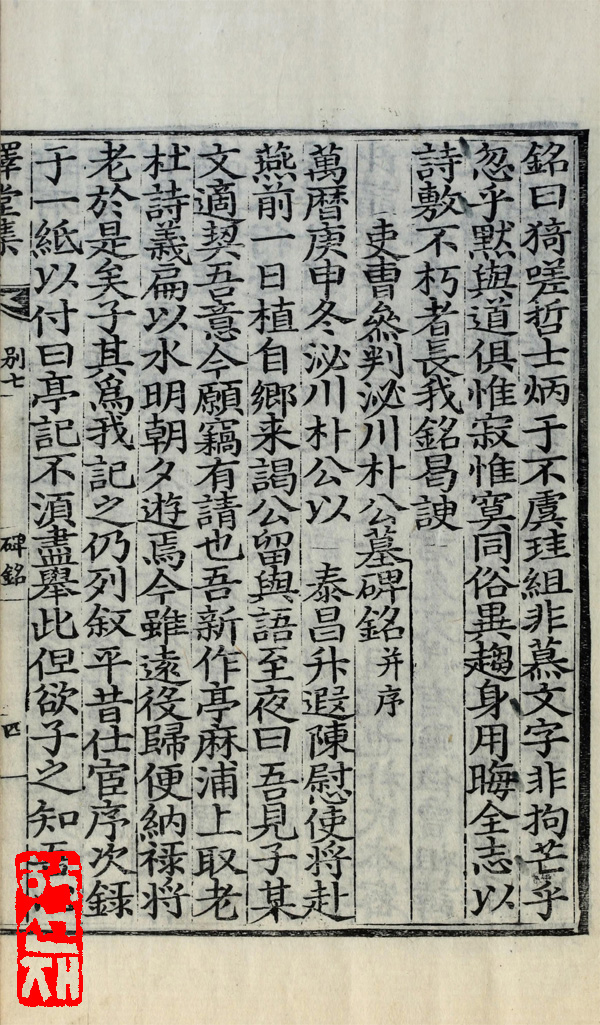 銘曰猗嗟哲士炳于不虞珪組非慕文字非拘芒乎
忽乎黙與道俱惟寂惟寞同俗異趨身用晦全志以
詩敷不朽者長我銘曷諛
吏曹叅判泌川朴公墓碑銘 并序
萬曆庚申冬泌川朴公以 泰昌升遐陳慰使將赴
燕前一日植自鄉来謁公留與語至夜曰吾見子某
文適契吾意今願竊有請也吾新作亭麻浦上取老
杜詩義扁以水明朝夕遊焉今雖遠役歸便納禄將
老於是矣子其爲我記之仍列叙平昔仕宦序次録
于一紙以付曰亭記不湏盡舉此但欲子之知
澤堂集 别七 碑銘 四